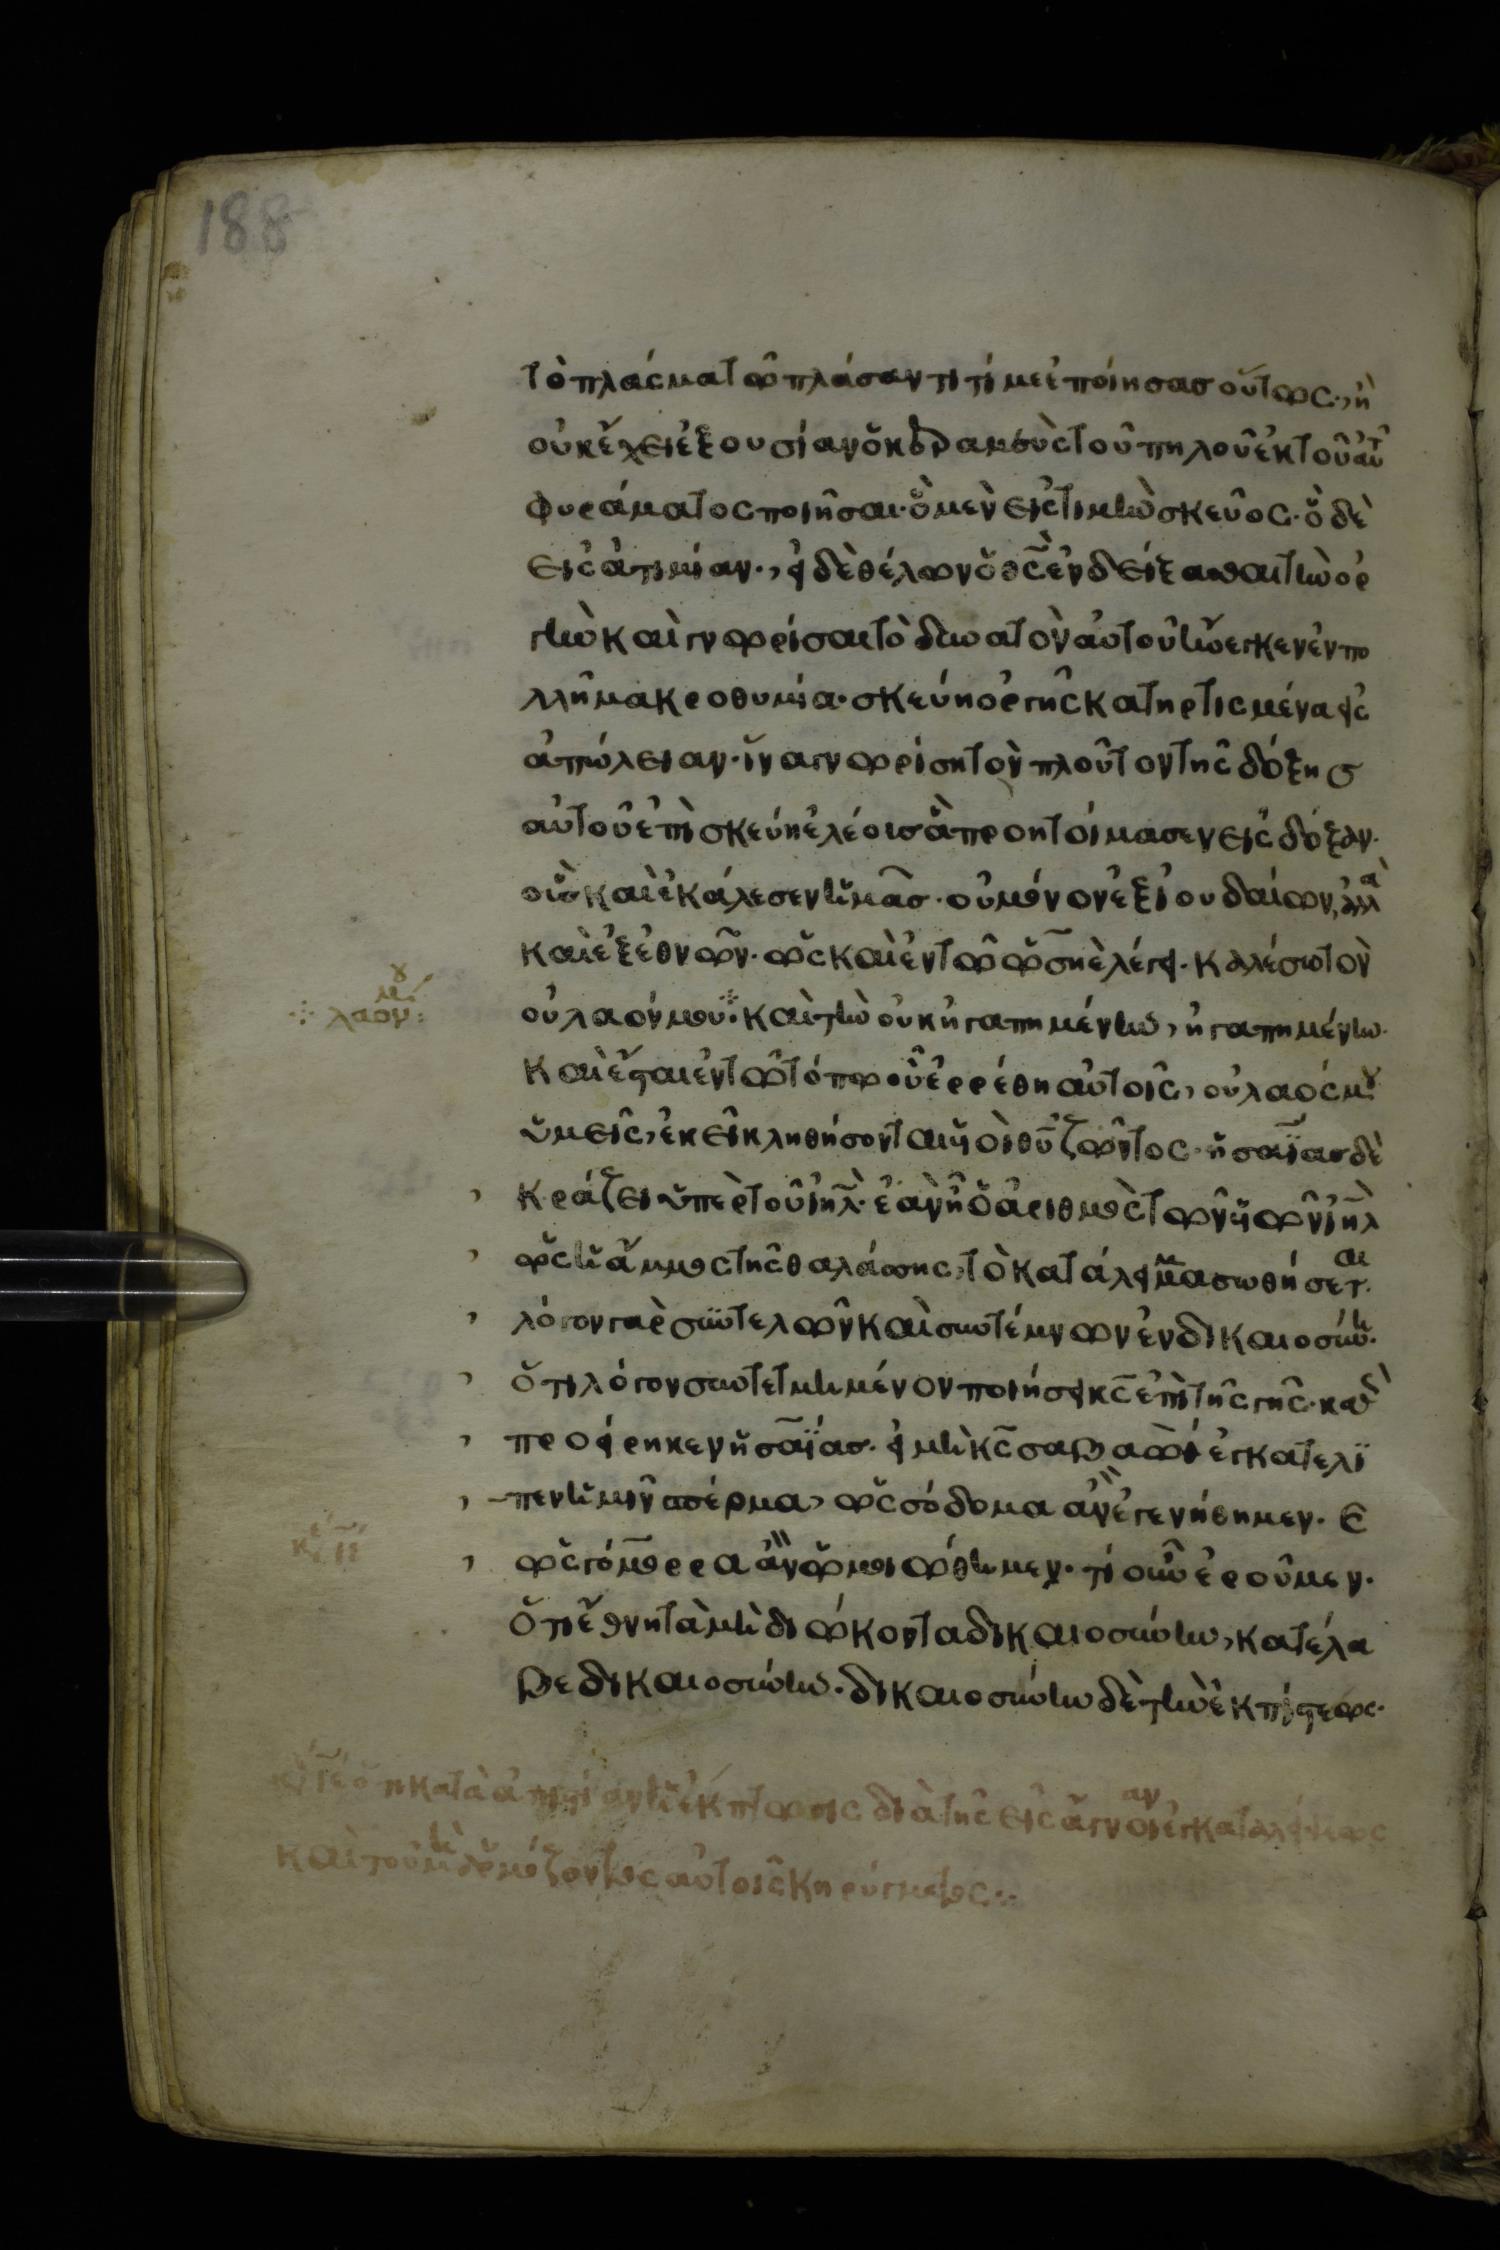 188
τὸ πλάσμα τῶ πλάσαντι τί με ἐποίησας οὕτως., ἢ
οὐκ ἔχει ἐξουσίαν ὁ κεραμεὺς τοῦ πηλοῦ ἐκ τοῦ αὐτ
φυράματος ποιῆσαι· ὃ μὲν εἰς τιμὴν σκεῦος· ὃ δὲ
εἰς ἀτιμίαν., εἰ δὲ θέλων ὁ θς ἐνδείξασθαι τὴν ὀρ
γὴν καὶ γνωρίσαι τὸ δυνατὸν αὐτοῦ ἤνεγκεν ἐν πο
λλῆ μακροθυμία· σκεύη ὀργῆς κατηρτισμένα εἰς
ἀπώλειαν· ἵνα γνωρίση τὸν πλοῦτον τῆς δόξης
αὐτοῦ ἐπὶ σκεύη ἐλέους ἃ προητοίμασεν εἰς δόξαν·
οὓς καὶ ἐκάλεσεν ἡμᾶς· οὐ μόνον ἐξ ἰουδαίων, ἀλλὰ
καὶ ἐξ ἐθνῶν· ὡς καὶ ἐν τῶ ὡσηὲ λέγει· καλέσω τὸν
οὐ λαόν μου· καὶ τὴν οὐκ ἠγαπημένην, ἠγαπημένην·
λαόν μου:
καὶ ἔσται ἐν τῶ τόπω οὗ ἐρρέθη αὐτοῖς, οὐ λαός μου
ὑμεῖς, ἐκεῖ κληθήσονται υἱοὶ θυ ζῶντος· ἡσαΐας δὲ
κράζει ὑπὲρ τοῦ ιηλ· ἐὰν ἦ ὁ ἀριθμὸς τῶν υἱῶν ιηλ
ὡς ἡ ἄμμος τῆς θαλάσσης, τὸ κατάλειμμα σωθήσεται·
λόγον γὰρ συντελῶν καὶ συντέμνων ἐν δικαιοσύνη·
ὅτι λόγον συντετμημένον ποιήσει κς ἐπὶ τῆς γῆς· καθὼς
προείρηκεν ἡσαΐας· εἰ μὴ κς σαβαὼθ ἐγκατέλι
πεν ἡμῖν σπέρμα, ὡς σόδομα ἂν ἐγενήθημεν·
ὡς γόμορρα ἂν ὡμοιώθημεν· τί οὖν ἐροῦμεν·
ὅτι ἔθνη τὰ μὴ διώκοντα δικαιοσύνην, κατέλα
βε δικαιοσύνην· δικαιοσύνην δὲ τὴν ἐκ πίστεως·
κατὰ ἀπιστίαν ἡ ἔκπτωσις διὰ τῆς εἰς ἄγνοιαν ἐγκαταλείψεως
καὶ τοῦ μὴ ἁρμόζοντος αὐτοῖς κηρύγματος·